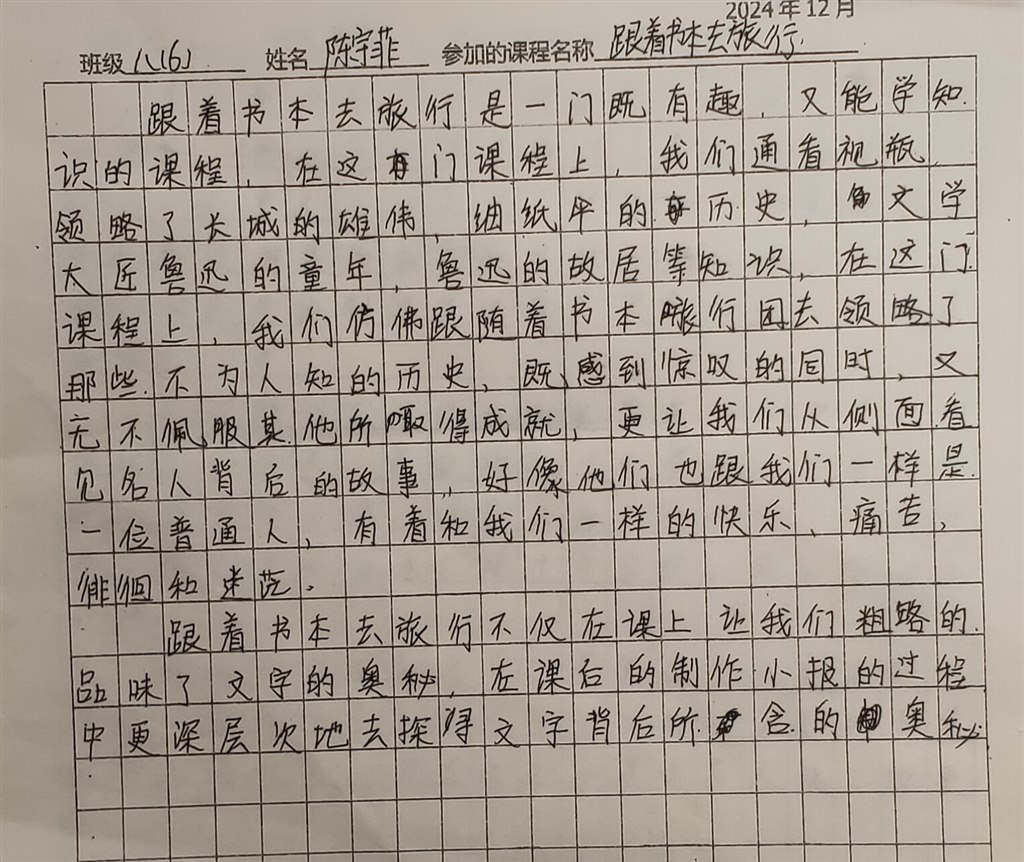 2024年12月
班级 八(6) 姓名 陈宇菲 参加的课程名称 跟着书本去旅行
跟着书本去旅行是一门既有趣，又能学知
识的课程，在这门课程上，我们通看视瓶，
领略了长城的雄伟，细纸伞的历史，文学
大匠鲁迅的童年，鲁迅的故居等知识，在这门
课程上，我们仿佛跟随着书本旅行团去领略了
那些不为人知的历史，既感到惊叹的同时，又
无不佩服其他所取得成就，更让我们从侧面看
见名人背后的故事，好像他们也跟我们一样是
一位普通人，有着和我们一样的快乐、痛苦，
徘徊和迷茫。
跟着书本去旅行不仅在课上让我们粗略的
品味了文字的奥秘，在课后的制作小报的过程
中更深层次地去探寻文字背后所含的奥秘